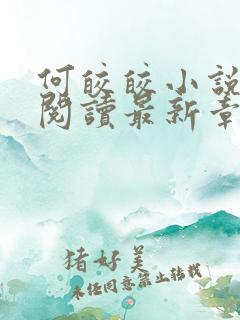 何皎皎小說
閱讀最新章
猪好美
未经同意禁止转载